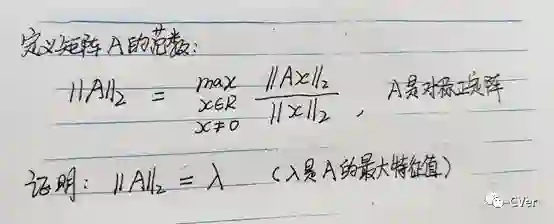 定义矩阵A的范数:
||A||₂ = max x∈R x≠0 ||Ax||₂ / ||x||₂ , A是对称正定矩阵
证明: ||A||₂ = λ (λ是A的最大特征值)
CVer